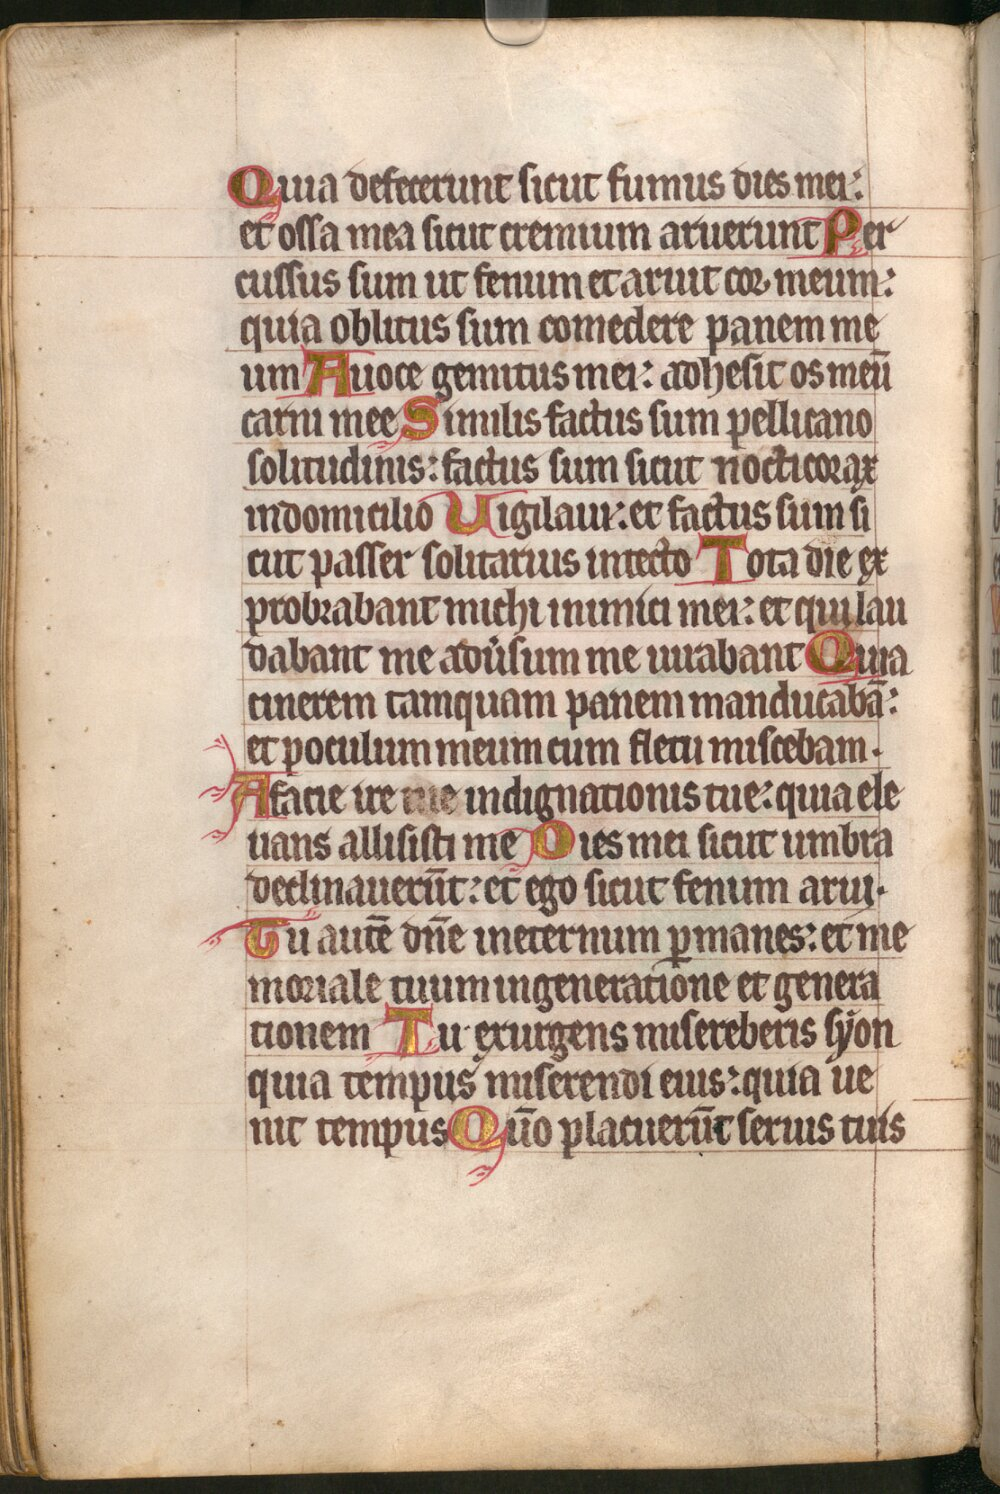 Quia defecerunt sicut fumus dies mei:
et ossa mea sicut cremium aruerunt Per
cussus sum ut fenum et aruit cor meum:
quia oblitus sum comedere panem me
um A uoce gemitus mei: adhesit os meū
carni mee Similis factus sum pellicano
solitudinis: factus sum sicut nocticorax
in domicilio Uigilaui: et factus sum si
cut passer solitarius in tecto Tota die ex
probrabant michi inimici mei: et qui lau
dabant me adu̾sum me iurabant Quia
cinerem tamquam panem manducabā:
et poculum meum cum fletu miscebam.
A facie ire indignationis tue: quia ele
uans allisisti me Dies mei sicut umbra
declinauerūt: et ego sicut fenum arui.
Tu autē dn̄e in eternum ꝑmanes: et me
moriale tuum in generatione et genera
tionem Tu exurgens misereberis syon
quia tempus miserendi eius: quia ue
nit tempus Qūo placuerūt seruis tuis